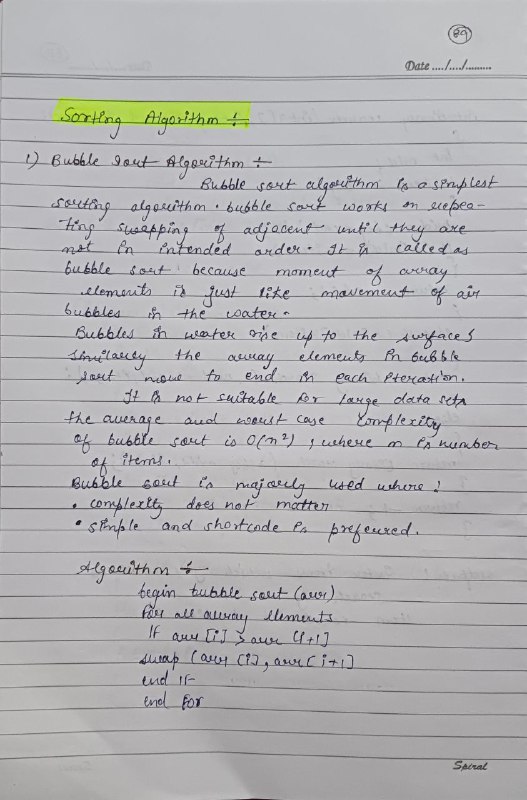 89
Date ..../..../.........
Sorting Algorithm ÷
1) Bubble sort Algorithm ÷
Bubble sort algorithm is a simplest
sorting algorithm. bubble sort works on repea-
ting swapping of adjacent until they are
not in intended order. It is called as
bubble sort because moment of array
elements is just like movement of air
bubbles in the water.
Bubbles in water rise up to the surface;
similarly the array elements in bubble
sort move to end in each iteration.
It is not suitable for large data sets
the average and worst case complexity
of bubble sort is O(n²), where n is number
of items.
Bubble sort is majorly used where:
• complexity does not matter
• simple and shortcode is preferred.
Algorithm ÷
begin bubble sort (arr)
for all array elements
If arr [i] > arr [i+1]
swap (arr [i], arr [i+1]
end If
end for
Spiral